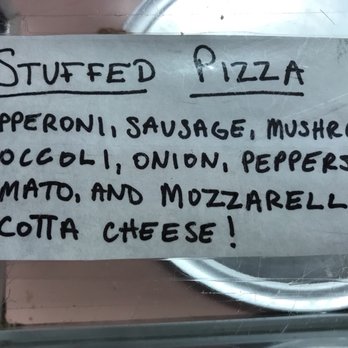 STUFFED PIZZA
PPERONI, SAUSAGE, MUSHRO
OCCOLI, ONION, PEPPERS
MATO, AND MOZZARELL
COTTA CHEESE!